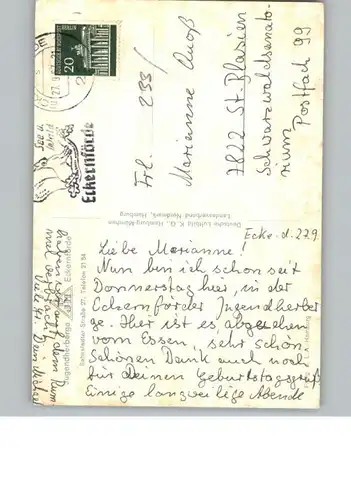 20
20
DEUTSCHE BUNDESPOST BERLIN
Eckernförde
Frl. 233/
Marianne
7822 St. Blasien
Schwarzwaldsanato-
rium Postfach 99
Deutsche Luftbild K. G., Hamburg-München
Landesverband Nordmark, Hamburg
Jugendherberge Eckernförde
Sehestedter Straße 27, Telefon 21 54
Ecke. d. 22.9.
Liebe Marianne!
Nun bin ich schon seit
Donnerstag hier, in der
Eckernförder Jugendherber
ge. Hier ist es, abgesehen
vom Essen, sehr schön.
Schönen Dank auch noch
für Deinen Geburtstagsgruß
Einige langweilige Abende
Viele Gr. Dein